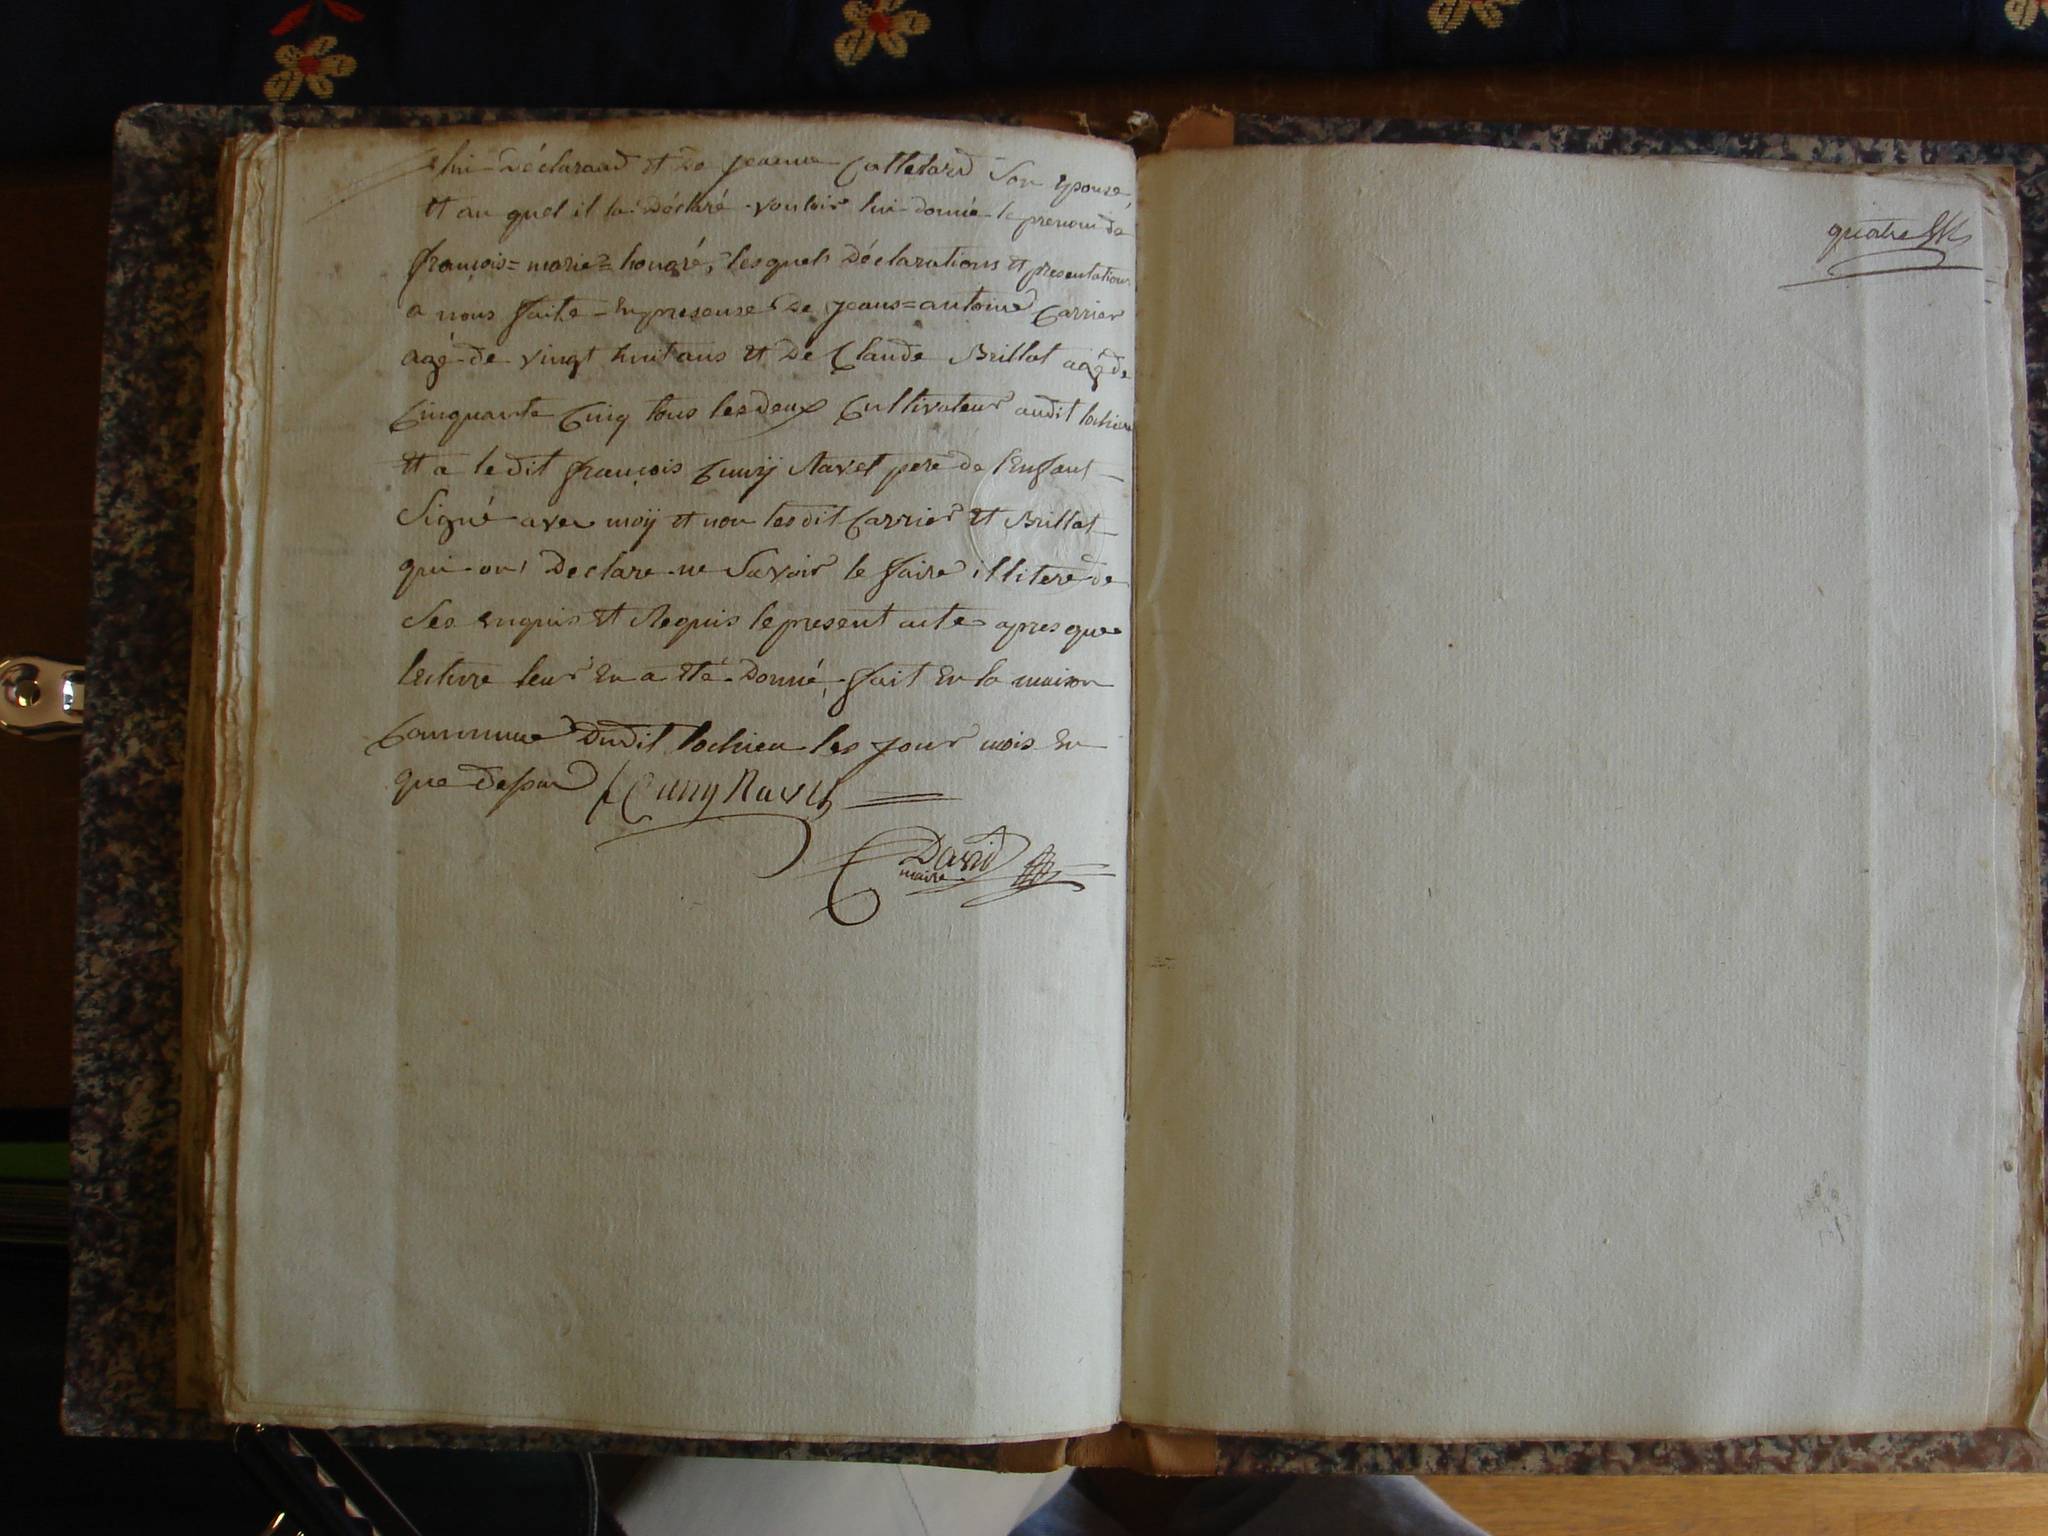 lui Déclarand et De jeanne Cattelard Son Epouse,
et au quel il la Déclaré vouloir lui donné le prenom de
françois=marie=honoré, lesquel Déclarations et presentations
a nous faite En presense De jeans=antoine Carrier
agé de vingt huit ans et De Claude Brillat agé de
Cinquante Cinq tous les deux Cultivateur audit lochieu
et a ledit françois Cunÿ Ravet pere de l'Enfant
Signé avec moÿ et non lesdit Carrier et Brillat
qui on Declare ne Savoir le faire illiteré de
Ses Enquis et Requis le present acte apres que
lecture leur En a été Donné, fait En la maison
Commune Dudit lochieu les jour mois En
que desur Cuny Ravet
David
maire
quatre